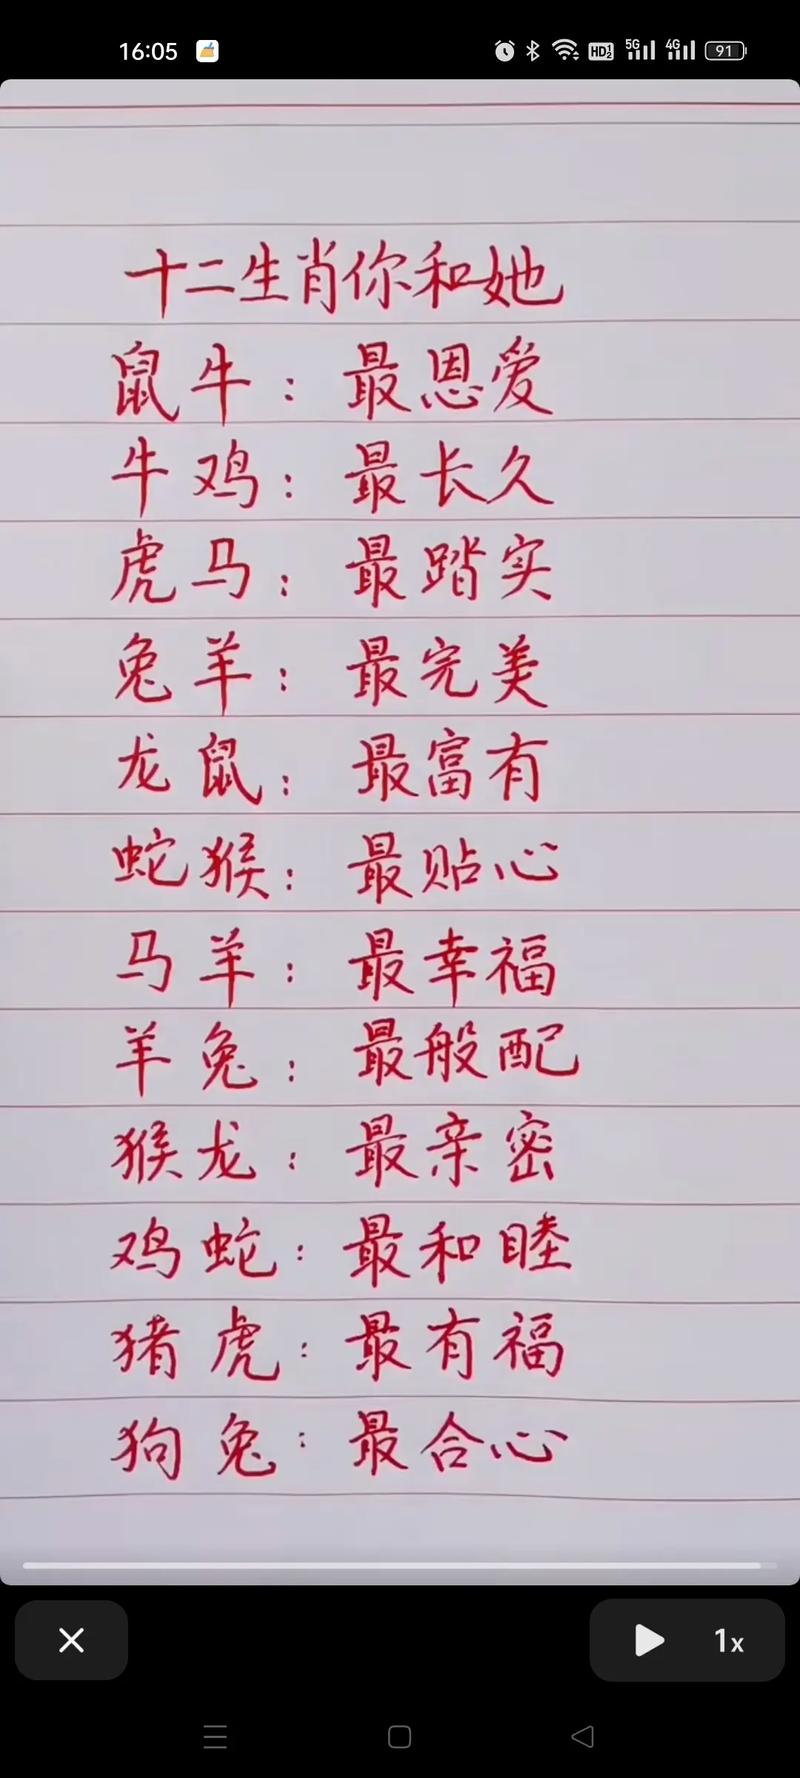 16:05
HD1 2 5G 4G 91
十二生肖你和她
鼠牛：最恩爱
牛鸡：最长久
虎马：最踏实
兔羊：最完美
龙鼠：最富有
蛇猴：最贴心
马羊：最幸福
羊兔：最般配
猴龙：最亲密
鸡蛇：最和睦
猪虎：最有福
狗兔：最合心
1x